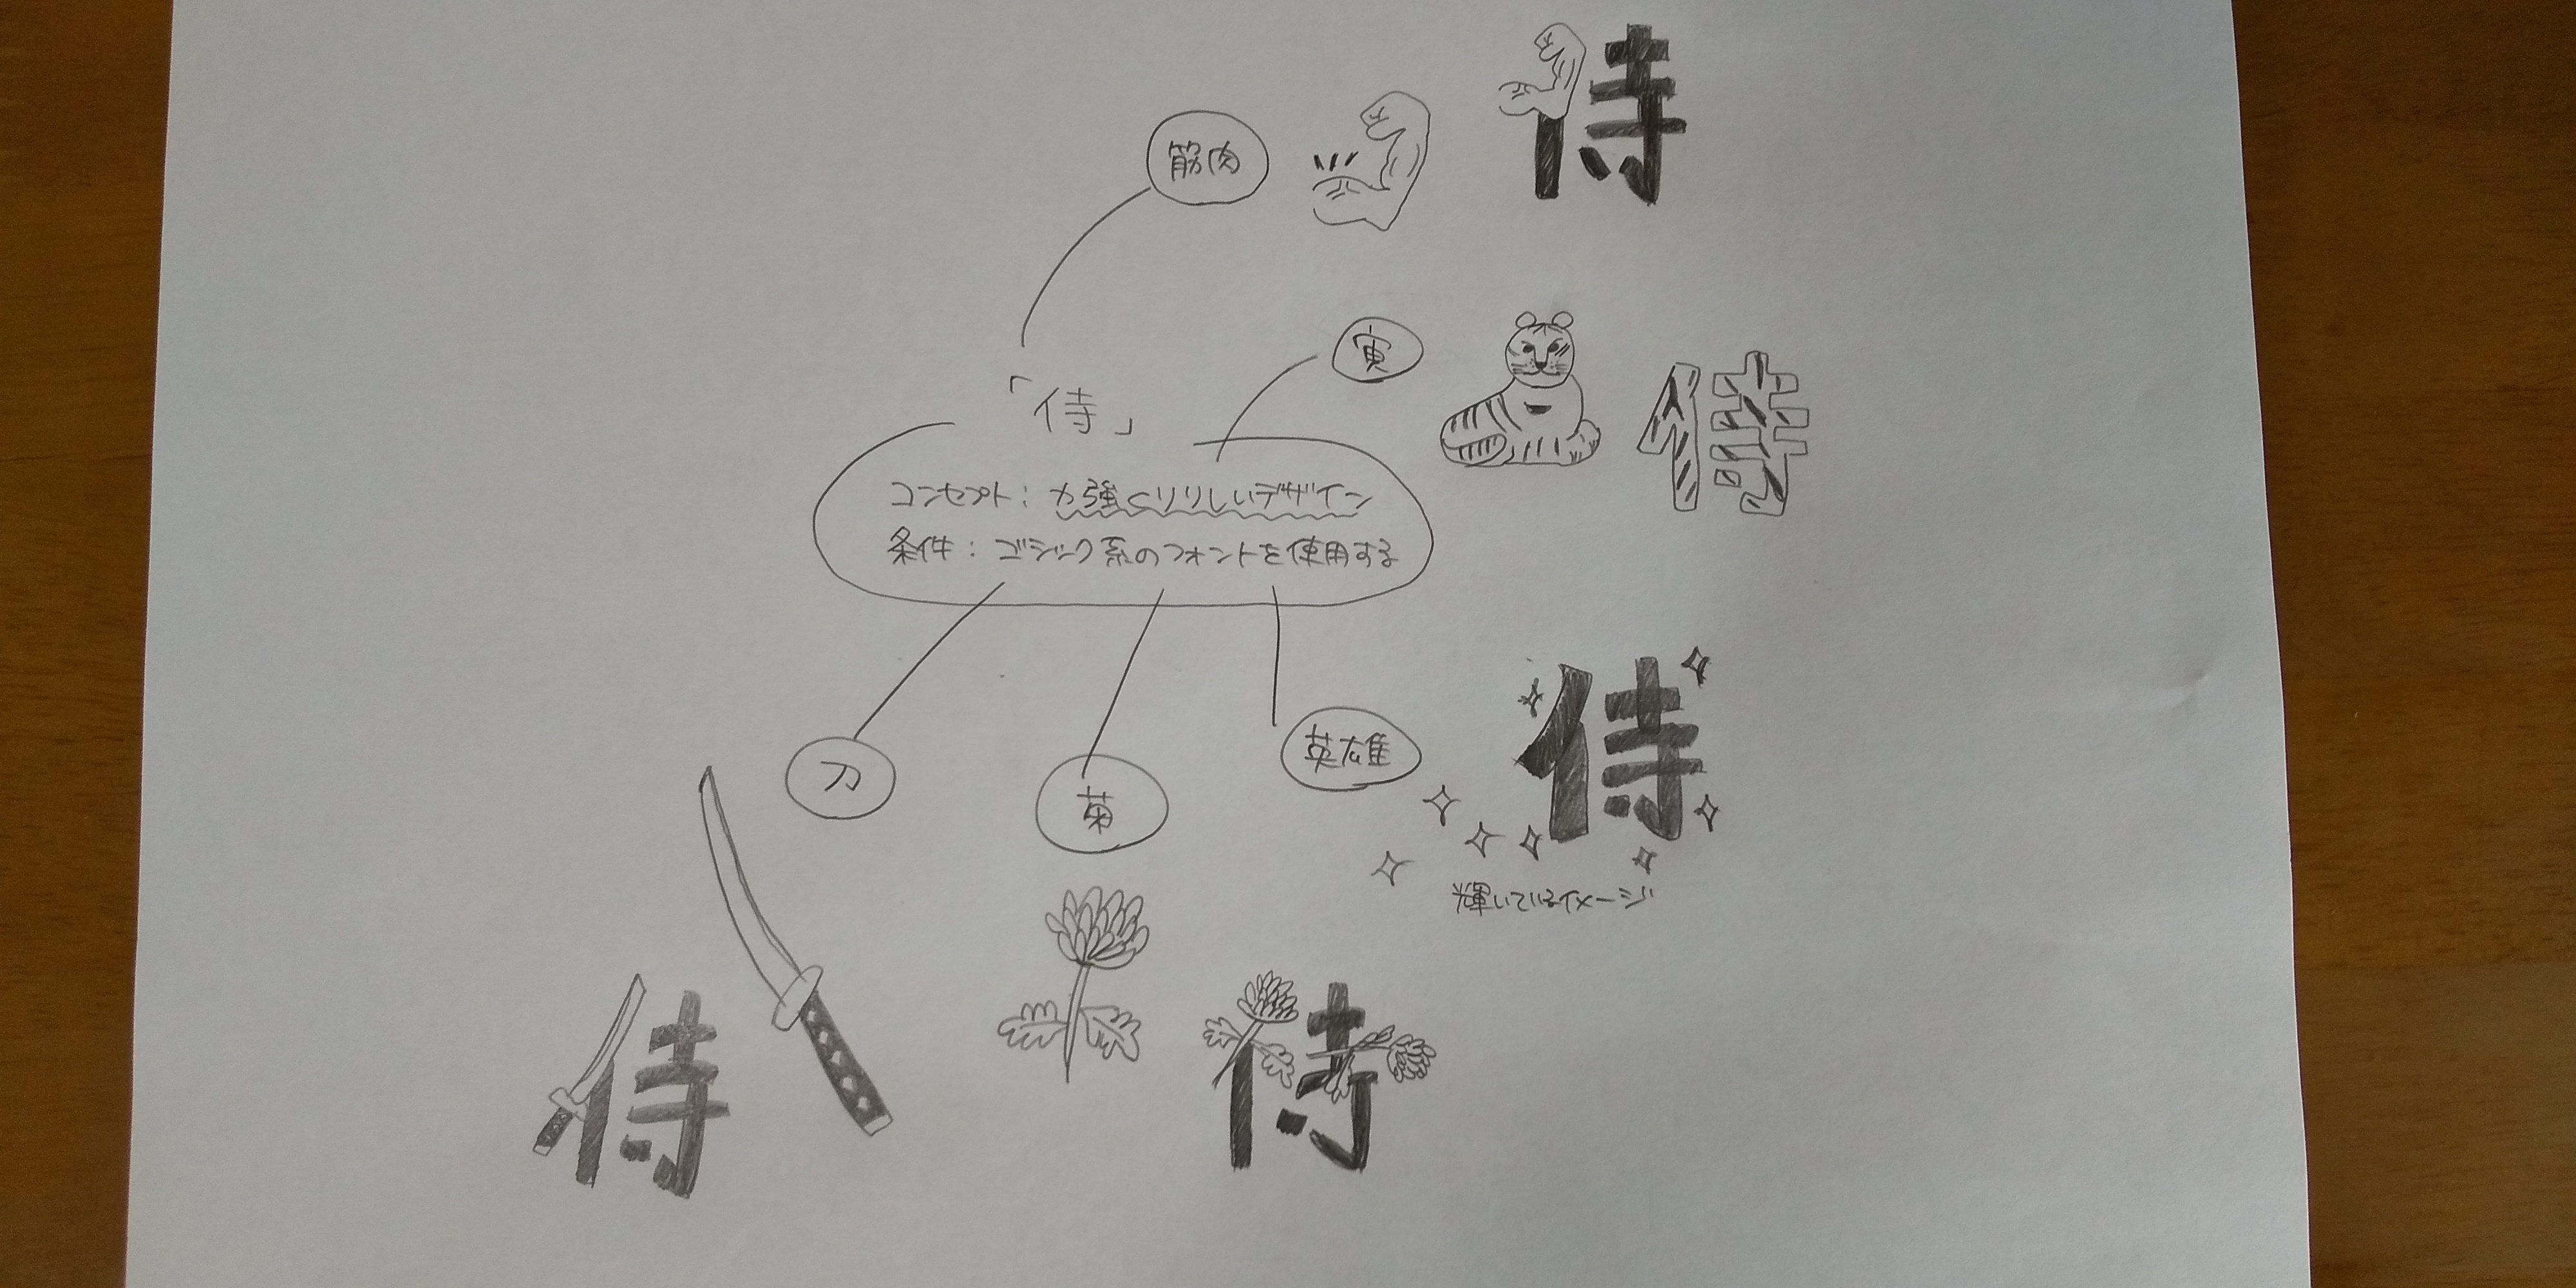 筋肉
侍
寅
侍
「侍」
コンセプト：力強くりりしいデザイン
条件：ゴシック系のフォントを使用する
刀
菊
英雄
侍
輝いているイメージ
侍
侍